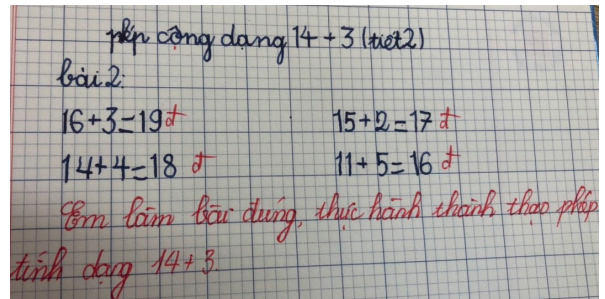 phép cộng dạng 14 + 3 (tiết 2)
bài 2:
16+3=19 đ 15+2=17 đ
14+4=18 đ 11+5=16 đ
Em làm bài đúng, thực hành thành thạo phép
tính dạng 14+3.